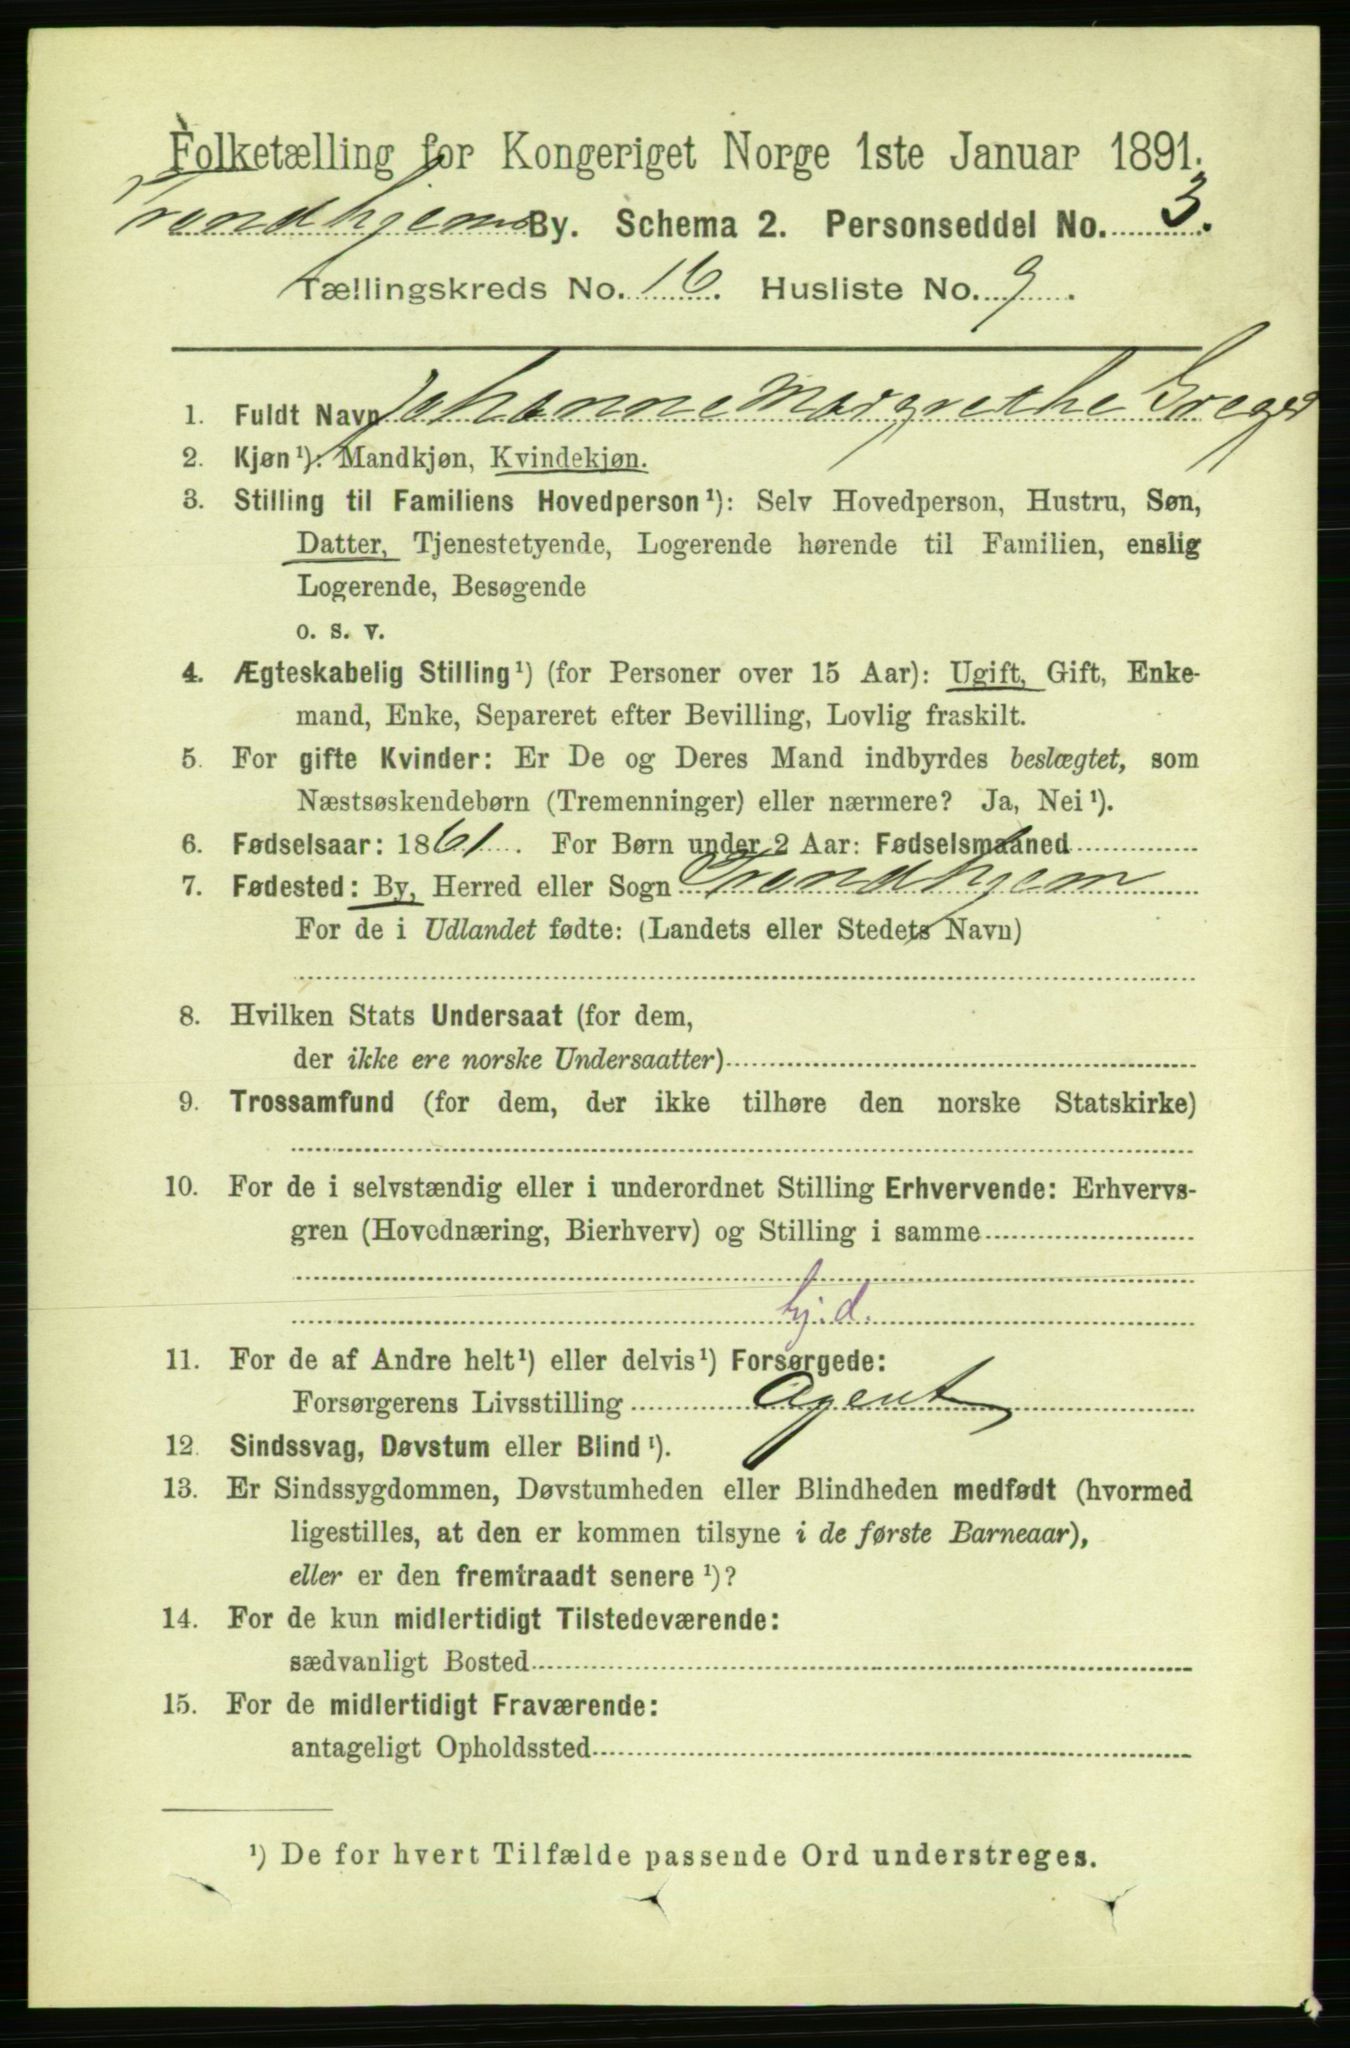 Folketælling for Kongeriget Norge 1ste Januar 1891.
Trondhjems By. Schema 2. Personseddel No. 3.
Tællingskreds No. 16. Husliste No. 9.
1. Fuldt Navn Johanne Margrethe
2. Kjøn¹): Mandkjøn, Kvindekjøn.
3. Stilling til Familiens Hovedperson¹): Selv Hovedperson, Hustru, Søn,
Datter, Tjenestetyende, Logerende hørende til Familien, enslig
Logerende, Besøgende
o. s. v.
4. Ægteskabelig Stilling¹) (for Personer over 15 Aar): Ugift, Gift, Enke-
mand, Enke, Separeret efter Bevilling, Lovlig fraskilt.
5. For gifte Kvinder: Er De og Deres Mand indbyrdes beslægtet, som
Næstsøskendebørn (Tremenninger) eller nærmere? Ja, Nei¹).
6. Fødselsaar: 1861. For Børn under 2 Aar: Fødselsmaaned
7. Fødested: By, Herred eller Sogn Trondhjem
For de i Udlandet fødte: (Landets eller Stedets Navn)
8. Hvilken Stats Undersaat (for dem,
der ikke ere norske Undersaatter)
9. Trossamfund (for dem, der ikke tilhøre den norske Statskirke)
10. For de i selvstændig eller i underordnet Stilling Erhvervende: Erhvervs-
gren (Hovednæring, Bierhverv) og Stilling i samme
hj. d.
11. For de af Andre helt¹) eller delvis¹) Forsørgede:
Forsørgerens Livsstilling Agent
12. Sindssvag, Døvstum eller Blind¹).
13. Er Sindssygdommen, Døvstumheden eller Blindheden medfødt (hvormed
ligestilles, at den er kommen tilsyne i de første Barneaar),
eller er den fremtraadt senere¹)?
14. For de kun midlertidigt Tilstedeværende:
sædvanligt Bosted
15. For de midlertidigt Fraværende:
antageligt Opholdssted
¹) De for hvert Tilfælde passende Ord understreges.